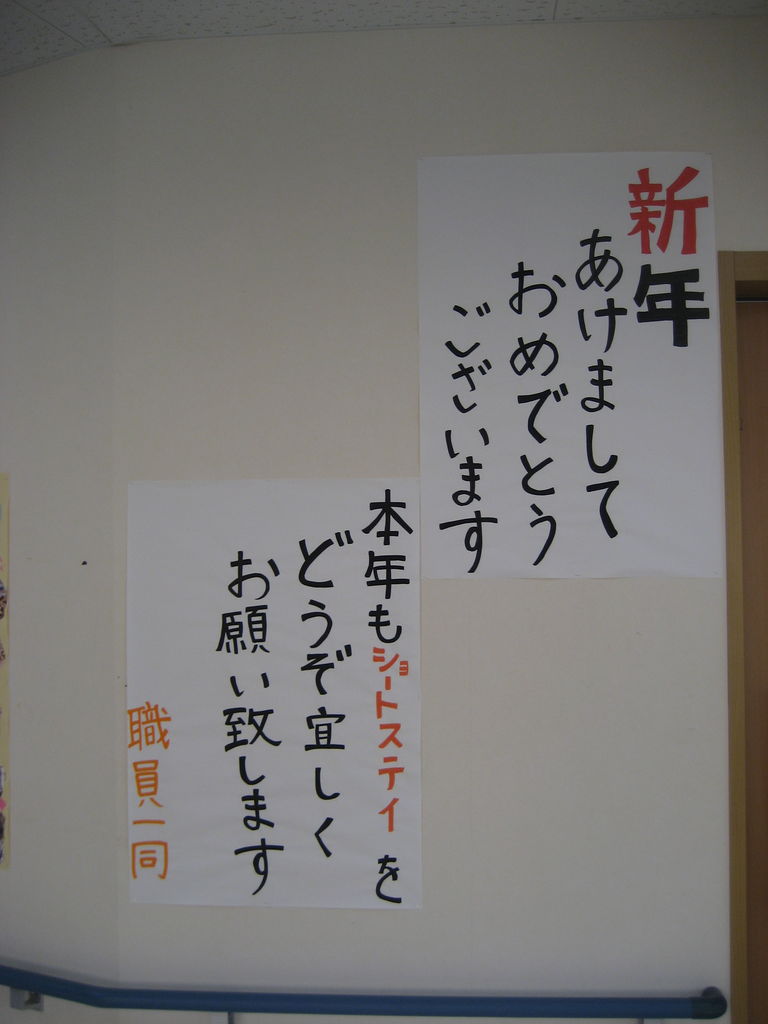 新年
あけまして
おめでとう
ございます
本年もショートステイを
どうぞ宜しく
お願い致します
職員一同